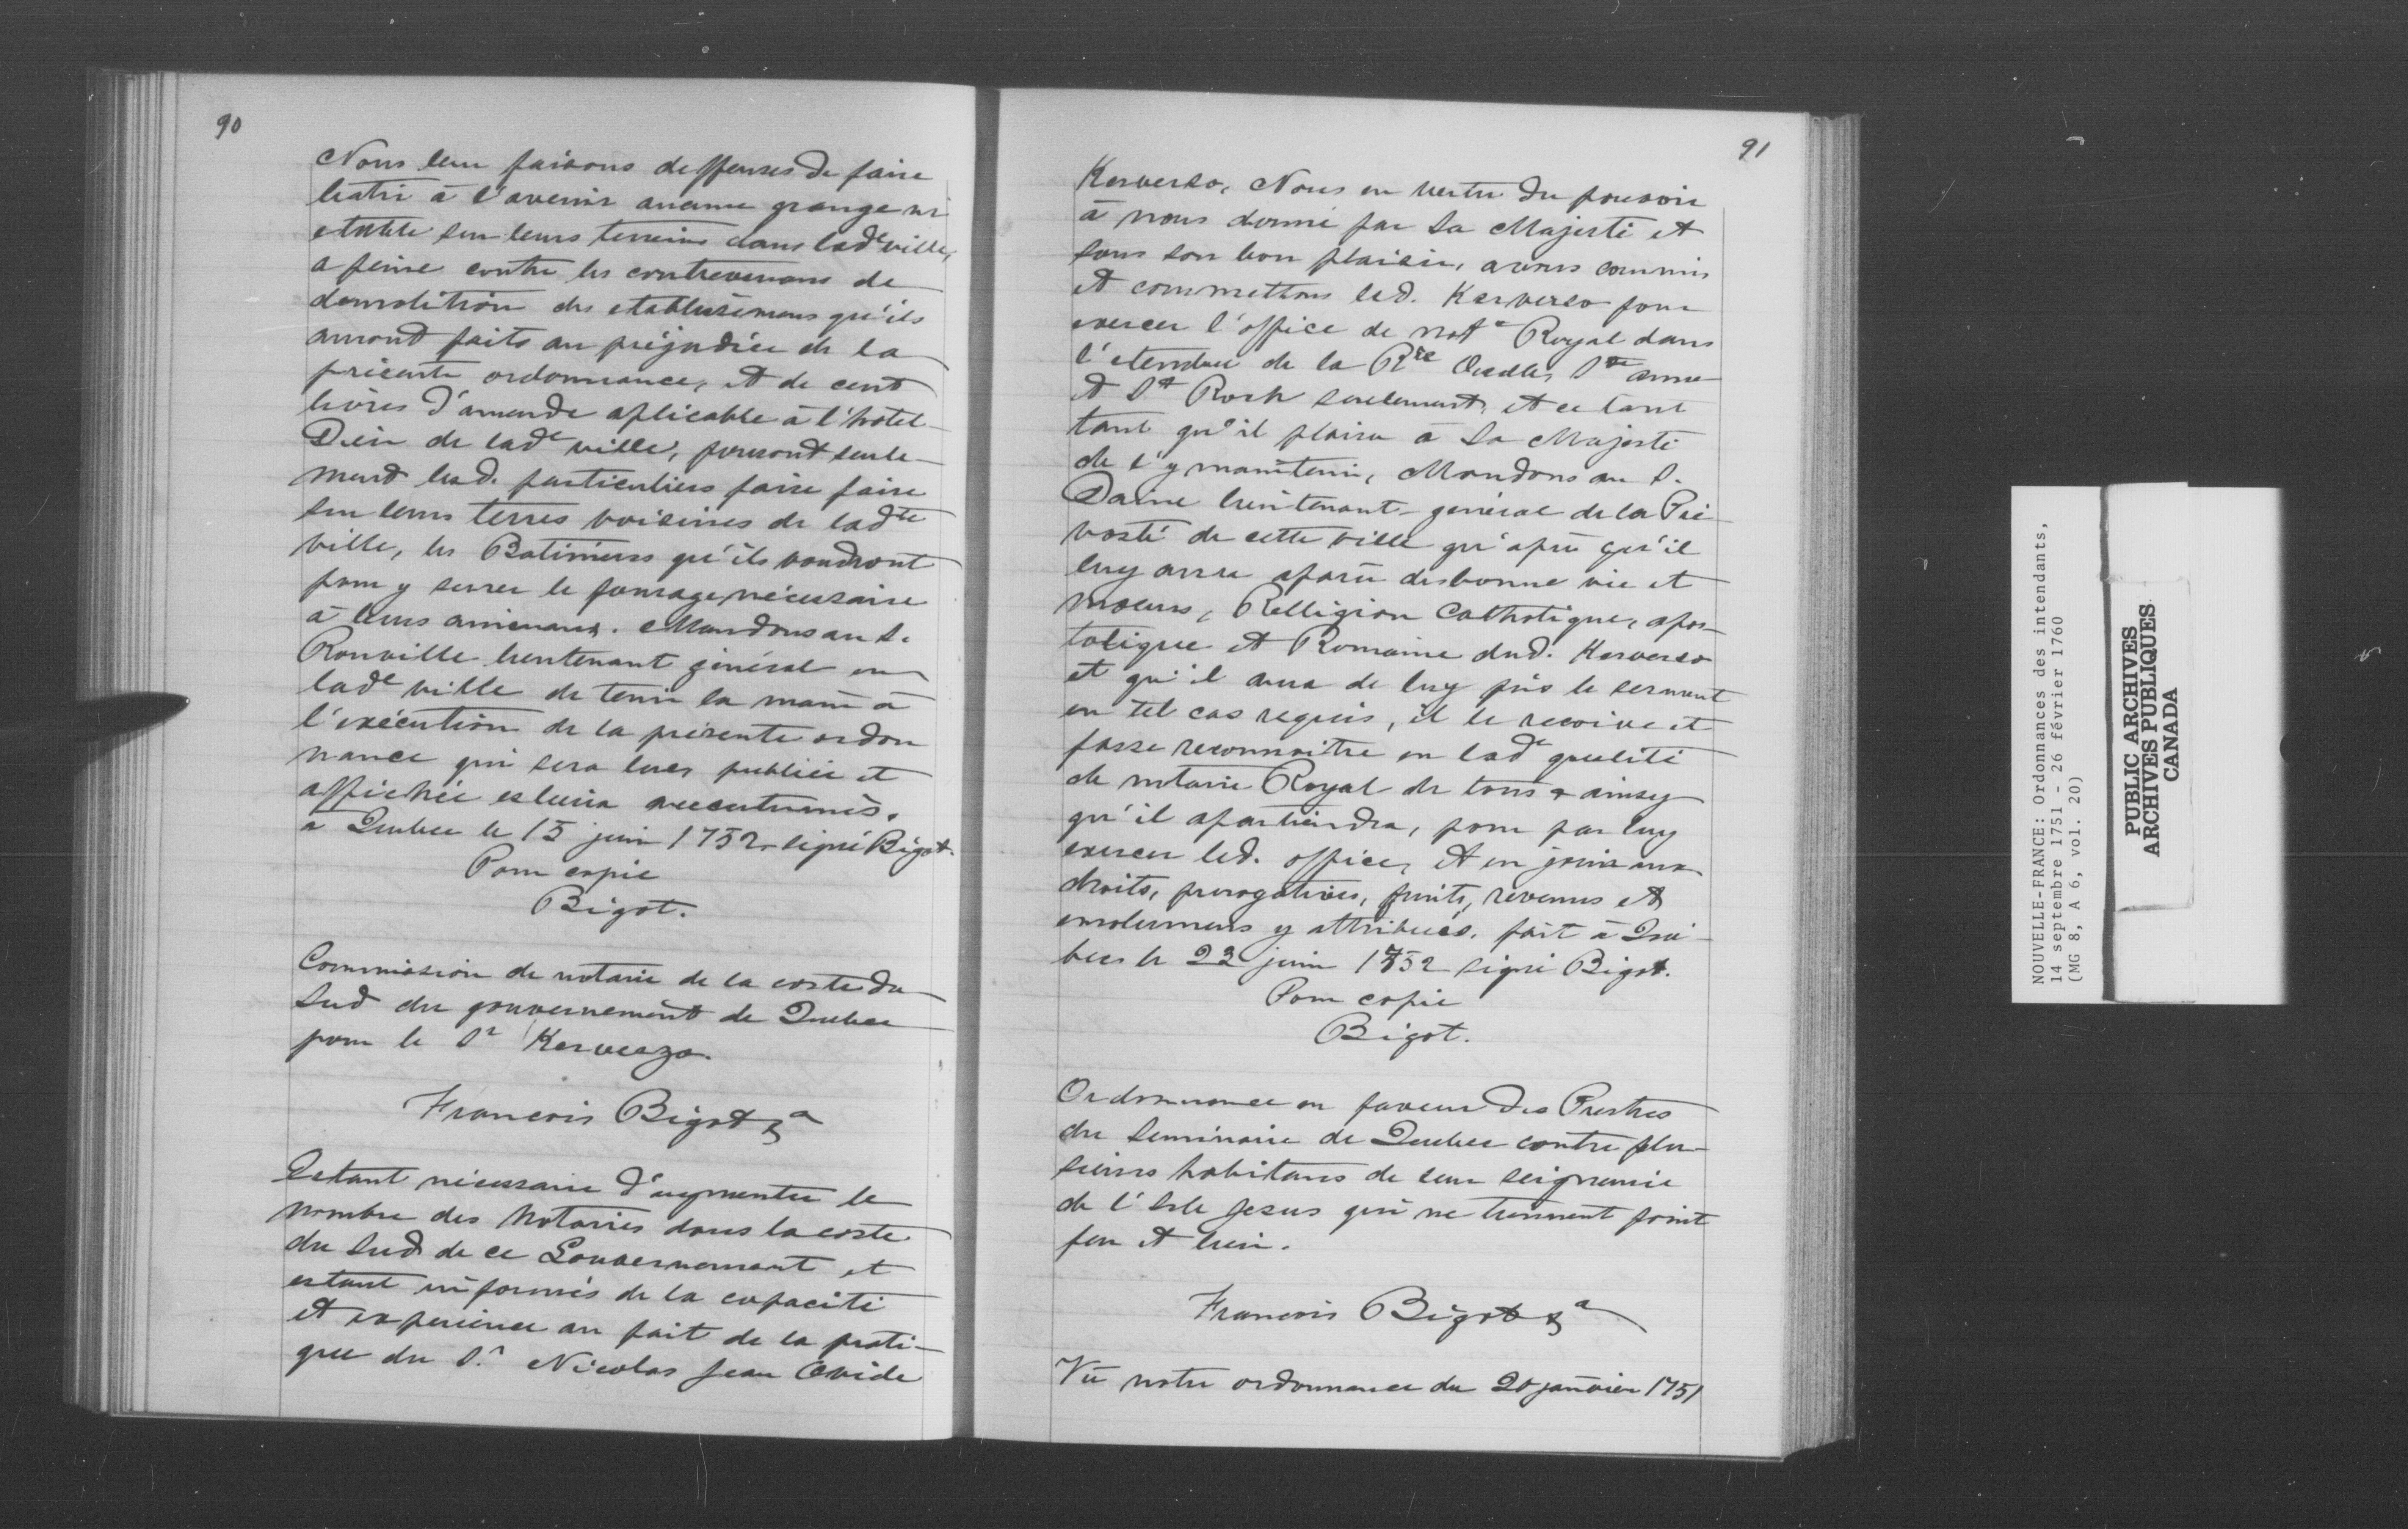 90
Nous leur faisons deffenses de faire
batir à l'avenir aucune grange ni
etable sur leurs terreins dans lade ville,
a peine contre les contrevenans de
demolition des etablissemens qu'ils
auront faits au préjudice de la
présente ordonnance, et de cent
livres d'amende aplicable à l'hotel
Dieu de lade ville, pourront seule-
ment lesd. particuliers faire faire
sur leurs terres voisines de ladte
ville, les Batimens qu'ils voudront
pour y serrer le fourage nécessaire
à leurs animaux. Mandons au S.
Rouville lieutenant général en
lade ville de tenir la main à
l'exécution de la présente ordon
nance qui sera lues publiée et
affichée es lieux accoutumés.
a Quebec le 15 juin 1752 signé Bigot.
Pour copie
Bigot.
Commission de notaire de la coste du
Sud du gouvernement de Quebec
pour le Sr Kerverzo.
Francois Bigot &a
Estant nécessaire d'augmenter le
nombre des Notaires dans la coste
du Sud de ce Gouvernement et
estant informés de la capacité
et experience au fait de la prati-
que du S.r Nicolas Jean Ovide
91
Kerverso, Nous en vertu du pouvoir
à nous donné par Sa Majesté et
sous son bon plaisir, avons commis
et commettons led. Kerverso pour
exercer l'office de note Royal dans
l'etendue de la Rre Ouelle, Ste anne
et St Roch seulement, et ce tant
tant qu'il plaira à Sa Majesté
de l'y maintenir, Mandons au S.
Daine lieutenant-général de la Pré
vosté de cette ville qu'après qu'il
luy aura aparu des bonne vie et
moeurs, Relligion Catholique, apos-
tolique et Romaine dud. Kerverso
et qu'il aura de luy pris le serment
en tel cas requis, il le recoive et
fasse reconnoitre en lade qualité
de notaire Royal de tous & ainsy
qu'il apartiendra, pour par luy
exercer led. office, et en jouir aux
droits, prerogatives, fruits, revenus et
emolumens y attribués. fait à Qué-
bec le 22 juin 1752 signé Bigot.
Pour copie
Bigot.
Ordonnance en faveur des Prestres
du Seminaire de Quebec contre plu-
sieurs habitans de leur seigneurie
de l'Isle Jesus qui ne tiennent point
feu et lieu.
Francois Bigot &a
Vû notre ordonnance du 20 janvier 1751
NOUVELLE-FRANCE: Ordonnances des intendants,
14 septembre 1751 - 26 février 1760
(MG 8, A 6, vol. 20)
PUBLIC ARCHIVES
ARCHIVES PUBLIQUES
CANADA